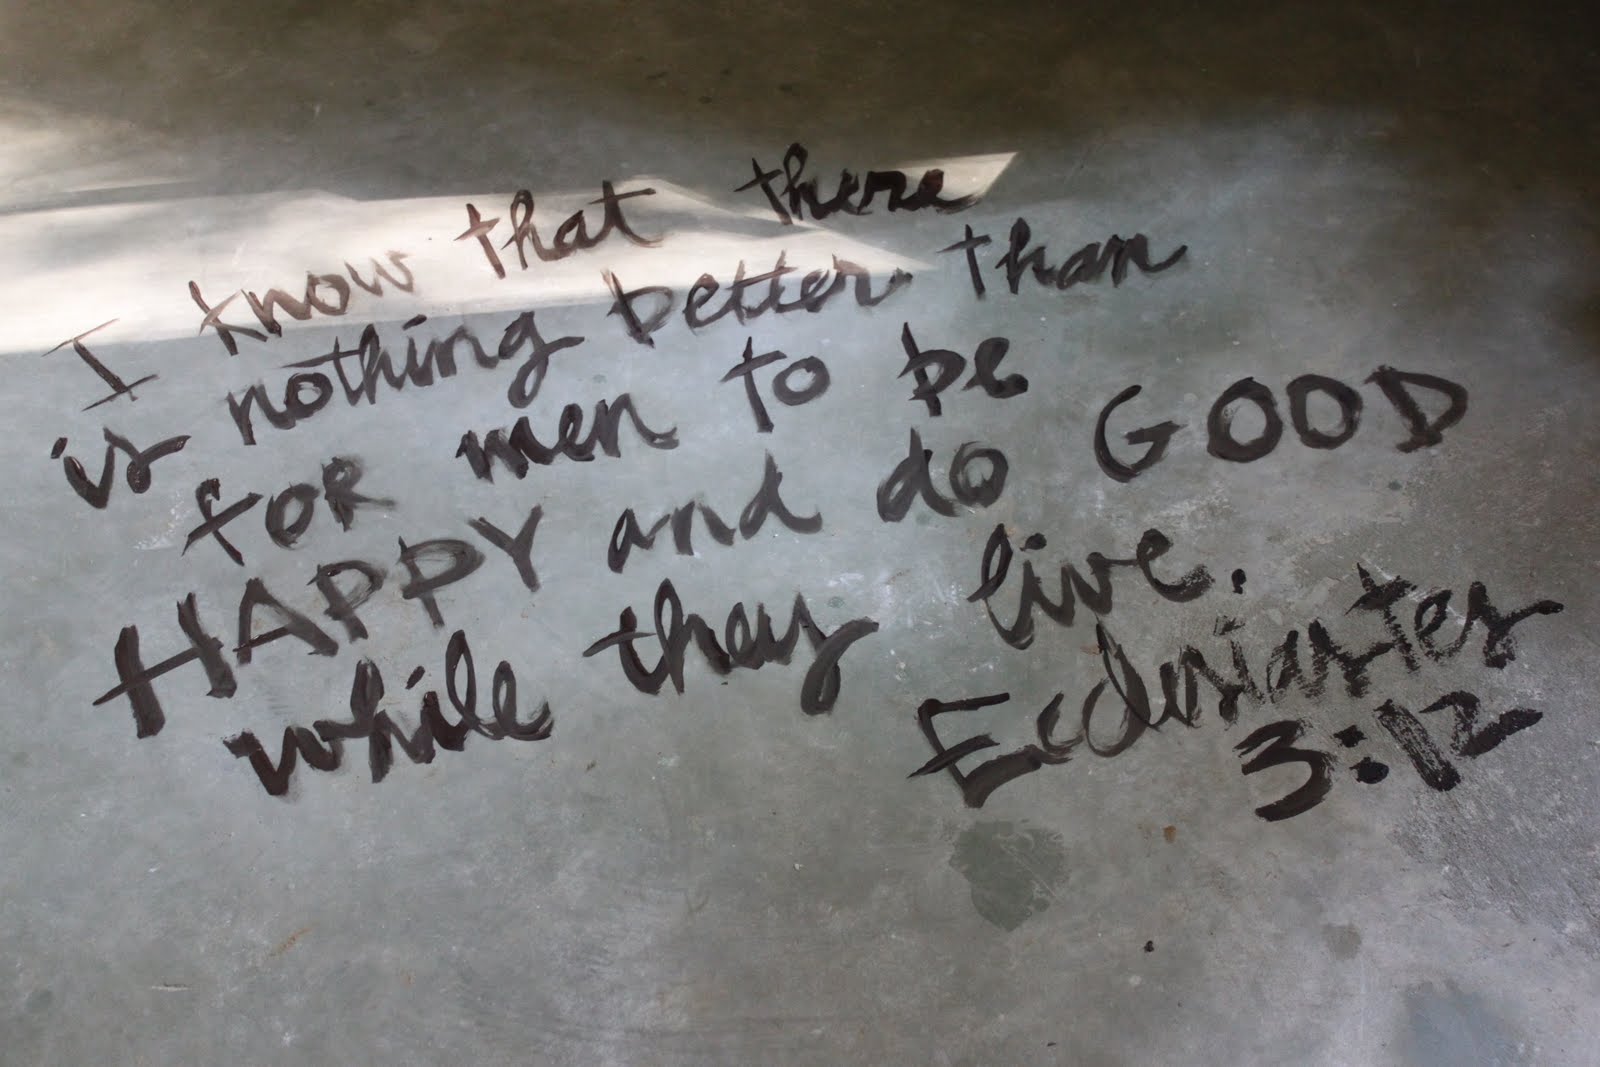 I know that there
is nothing better than
for men to be
HAPPY and do GOOD
while they live.
Ecclesiastes
3:12